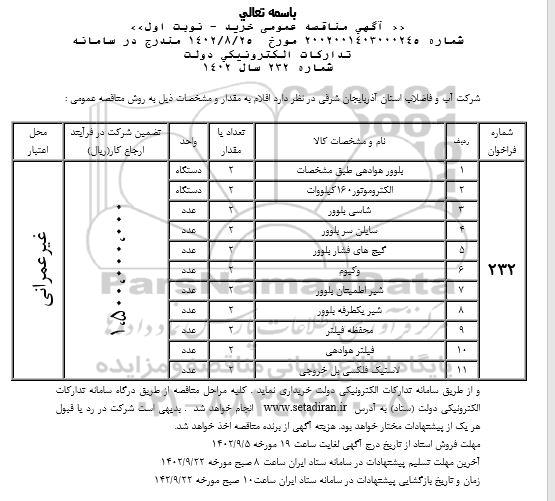 باسمه تعالي
<< آگهي مناقصه عمومی خرید - نوبت اول>>
شماره ۲۰۰۲۰۰۱۴۰۳۰۰۰۲۴۵ مورخ ۱۴۰۲/۸/۲۵ مندرج در سامانه
تدارکات الکترونیکي دولت
شماره ۲۳۲ سال ۱۴۰۲
شرکت آب و فاضلاب استان آذربایجان شرقی در نظر دارد اقلام به مقدار و مشخصات ذیل به روش مناقصه عمومی :
شماره فراخوان ردیف نام و مشخصات کالا تعداد یا مقدار واحد تضمین شرکت در فرآیند ارجاع کار(ریال) محل اعتبار
۲۳۲
۱ بلوور هوادهی طبق مشخصات ۲ دستگاه
۲ الکتروموتور۱۶۰کیلووات ۲ دستگاه
۳ شاسی بلوور ۲ عدد
۴ سایلن سر بلوور ۲ عدد
۵ گیج های فشار بلوور ۲ عدد
۶ وکیوم ۲ عدد
۷ شیر اطمینان بلوور ۲ عدد
۸ شیر یکطرفه بلوور ۲ عدد
۹ محفظه فیلتر ۲ عدد
۱۰ فیلتر هوادهی ۲ عدد
۱۱ لاستیک فلکسی بل خروجی ۲ عدد
۱،۵۰۰،۰۰۰،۰۰۰
غیرعمرانی
و از طریق سامانه تدارکات الکترونیکی دولت خریداری نماید . کلیه مراحل مناقصه از طریق درگاه سامانه تدارکات
الکترونیکی دولت (ستاد) به آدرس www.setadiran.ir انجام خواهد شد . بدیهی است شرکت در رد یا قبول
هر یک از پیشنهادات مختار خواهد بود. هزینه آگهی از برنده مناقصه اخذ خواهد شد.
مهلت فروش اسناد از تاریخ درج آگهی لغایت ساعت ۱۹ مورخه ۱۴۰۲/۹/۵
آخرین مهلت تسلیم پیشنهادات در سامانه ستاد ایران ساعت ۸ صبح مورخه ۱۴۰۲/۹/۲۲
زمان و تاریخ بازگشایی پیشنهادات در سامانه ستاد ایران ساعت۱۰ صبح مورخه ۱۴۲/۹/۲۲
ParsNamadData